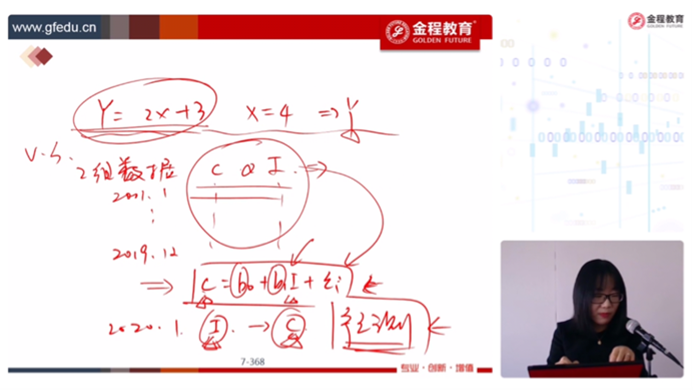 www.gfedu.cn
金程教育
GOLDEN FUTURE
金程教育
GOLDEN FUTURE
Y = 2x+3 x=4 ⇒ Y
V.S.
2组数据 C & I ⇒
2001.1
⋮
2019.12
⇒ C = b₀ + b₁I + εᵢ
2020.1. I → C
7-368
专业·创新·增值